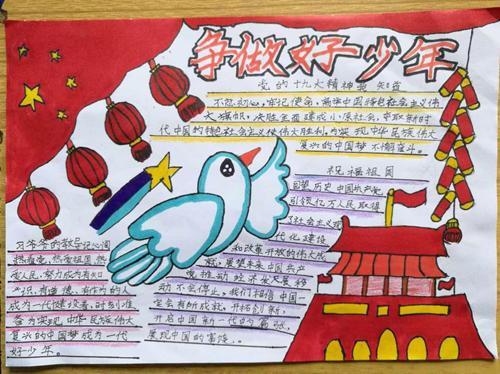 争做好少年
党的十九大精神我知道
不忘初心，牢记使命，高举中国特色社会主义伟
大旗帜，决胜全面建成小康社会，夺取新时
代中国特色社会主义伟大胜利，为实现中华民族伟大
复兴的中国梦不懈奋斗。
祝福祖国
回望历史中国共产党
引领亿万人民取得
了社会主义现
代化建设
和改革开放的伟大成
就，展望未来中国共产
党推动经济发展移
动不会停止，我们相信中国一
定会再创成就，开拓创新，
开启中国新一代的篇章，
展现中国的富饶。
习爷爷的教导记心间
热爱党，热爱祖国，热
爱人民，努力成为有知
识，有道德，有作为的人
成为一代建设者，时刻准
备为实现中华民族伟大
复兴的中国梦成为一代
好少年。